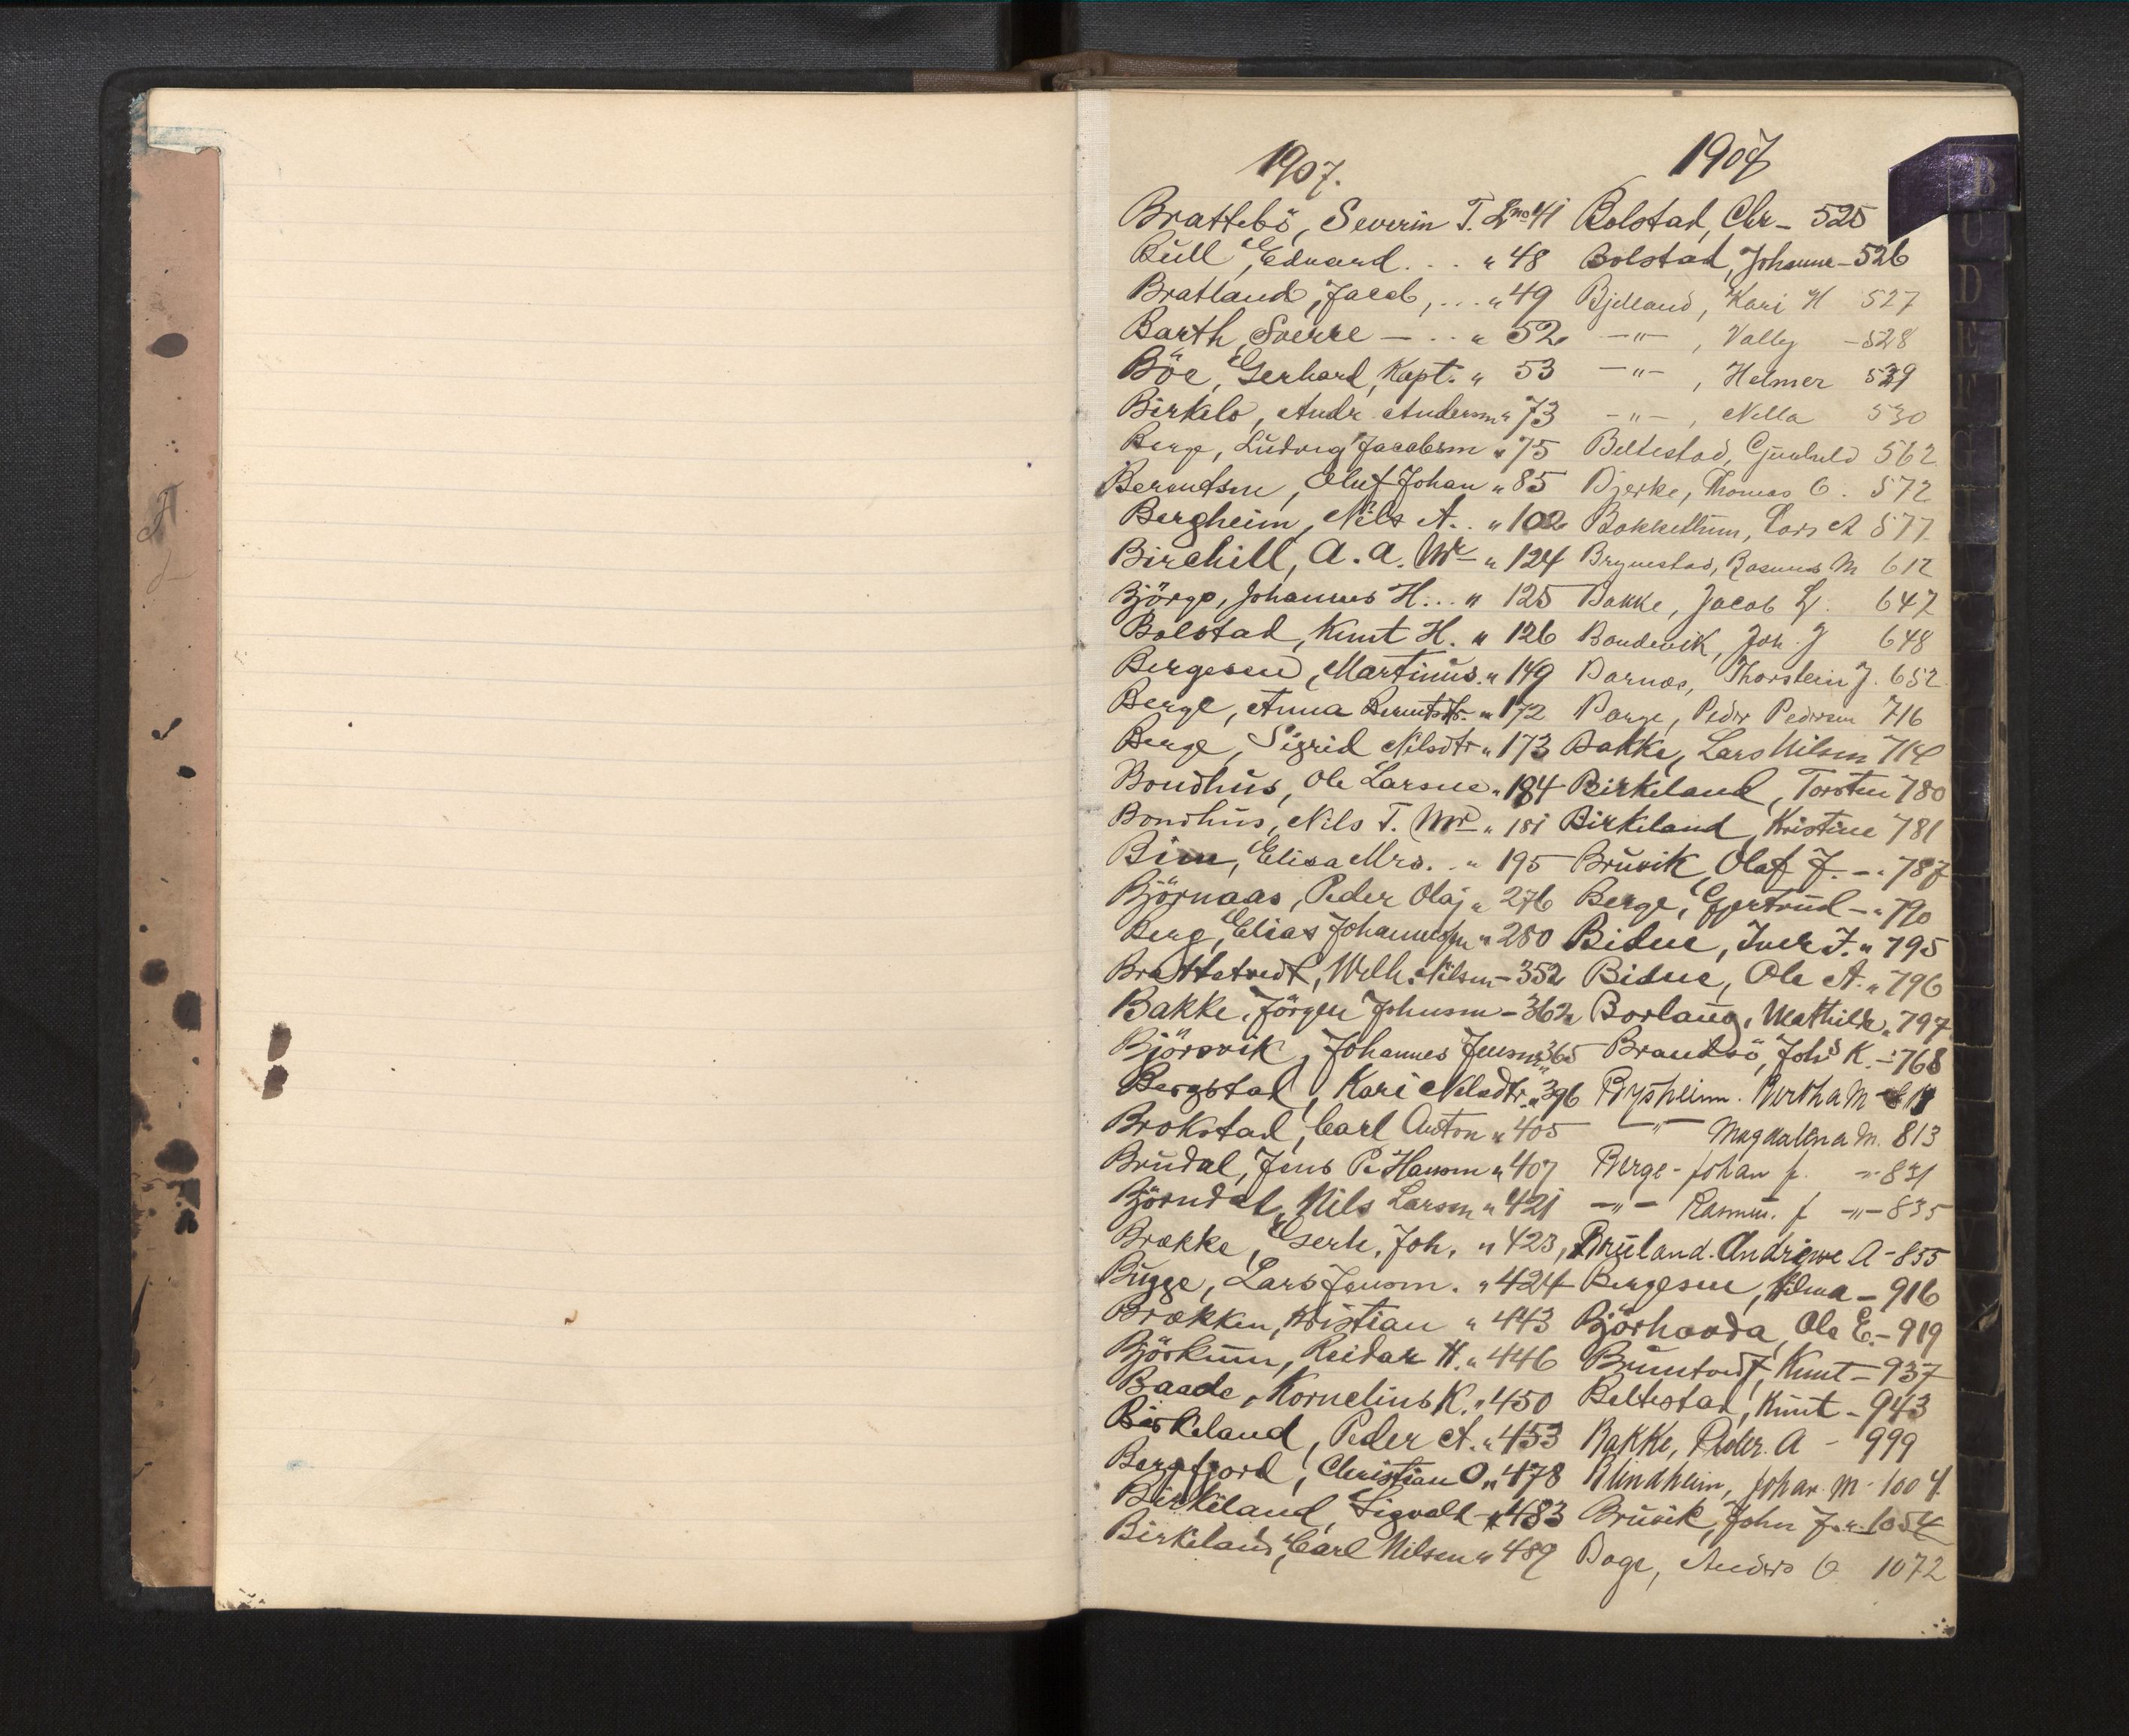 1907.
Brattebö, Severin T. Lno 41
Bull, Edvard . . . " 48
Bratland, Jacob, . . . " 49
Barth, Sverre — . . " 52
Böe, Gerhard, Kapt. " 53
Birkelo, Andr. Andersen " 73
Berge, Ludvig Jacobsen " 75
Berentsen, Oluf Johan " 85
Bergheim, Nils A. . " 102
Birchill, A. A. Mr " 124
Björgo, Johannes H. . . " 125
Bolstad, Knut H. " 126
Bergesen, Martinus. " 149
Berge, Anna Berentsdtr. " 172
Berge, Sigrid Nilsdtr " 173
Bondhus, Ole Larsen " 184
Bondhus, Nils T. Mr " 181
Elisa Mrs. . " 195
Björnaas, Peder Olaj " 276
Berg, Elias Johannessen " 280
Brattetvedt, Wilh. Nilsen - 352
Bakke, Jörgen Johnsen - 362
Björsvik, Johannes Jensen " 365
Bergstad, Kari Nilsdtr. " 396
Brokstad, Carl Anton " 405
Brudal, Jens P. Hansen " 407
Björndal, Nils Larsen " 421
Brække, Gerh. Joh. " 423,
Bugge, Lars Jensen. " 424
Brækken, Kristian " 443
Björkum, Reidar H. " 446
Baade, Kornelius K. " 450
Birkeland, Peder A. " 453
Bergfjord, Christian O. " 478
Birkeland, Sigvald - " 483
Birkeland, Carl Nilsen " 489
1907
Bolstad, Chr - 525
Bolstad, Johanne - 526
Bjelland, Kari H 527
—"— , Valby - 528
—"— , Helmer 529
—"— , Nella 530
Beltestad, Gunhild 562
Bjerke, Thomas O. 572
Bakketun, Lars A 577
Brynestad, Rasmus M 612
Bakke, Jacob L. 647
Bondevik, Joh. J 648
Barnes, Thorstein J. 652
Borge, Peder Pedersen 716
Bakke, Lars Nilsen 714
Birkeland, Torsten 780
Birkeland, Kristine 781
Bruvik, Olaf J. - " 787
Berge, Gjertrud - " 790
Bidne, Iver J. " 795
Bidne, Ole A. " 796
Borlaug, Mathilde " 797
Brandsö, Johs K. - " 768
Bysheim. Bertha M
—"— Magdalena M. 813
Berge - Johan J. - " 831
—"— Rasmus. J —"— 835
Bruland. Andrine A - 855
Bergesen, Hilma - 916
Björhovda, Ole E. - 919
Bruntvedt, Knut - 937
Beltestad, Knut - 943
Bakke, Peder. A - 999
Blindheim, Johan. M - 1004
Bruvik, John J. " 1054
Boge, Anders O 1072
B
D
E
F
G